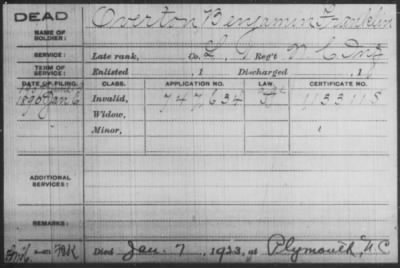 DEAD
NAME OF SOLDIER: Overton Benjamin Franklin
SERVICE: Late rank, Co. Reg't N C Inf
TERM OF SERVICE: Enlisted , 1 Discharged , 1
DATE OF FILING. CLASS. APPLICATION NO. LAW. CERTIFICATE NO.
1890 Jan 6 Invalid, 747634 1133118
Widow,
Minor,
ADDITIONAL SERVICES:
REMARKS:
Died Jan. 7, 1923, at Plymouth, N.C